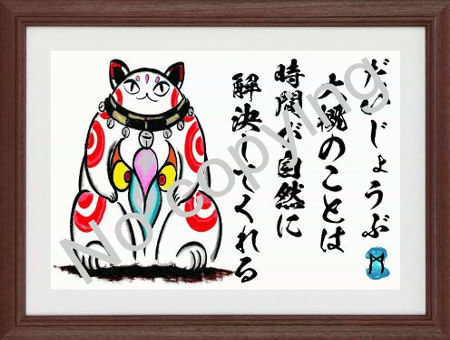 だいじょうぶ
大概のことは
時間が自然に
解決してくれる
No copying